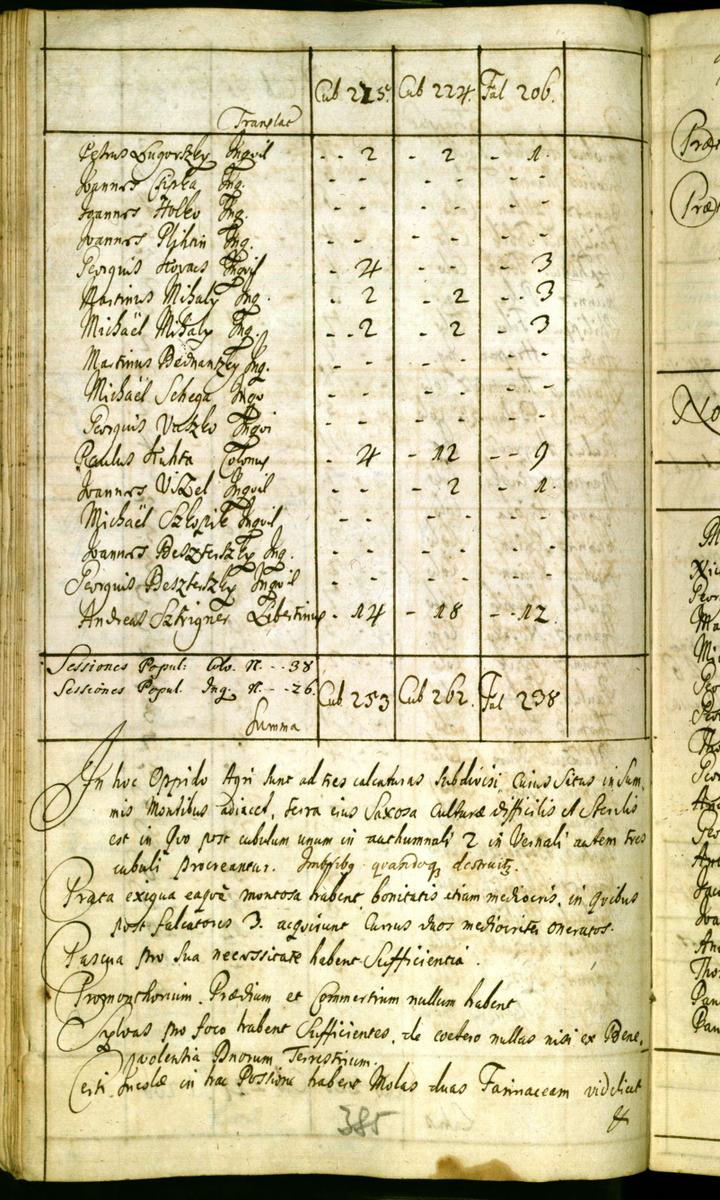 Cub 225. Cub 224. Fal 206.
Translat
Petrus Lugovszky Inqvil - - 2 - 2 - 1.
Joannes Cipka Inq. - - - - - -
Joannes Holko Inq. - - - - - -
Joannes Inq. - - - - - -
Georgius Kovacs Inqvil - 4 - - - 3
Martinus Mihaly Inq. - 2 - 2 - 3
Michaël Mihaly Inq. - 2 - 2 - 3
Martinus Bednarszky Inq. - - - - - -
Michaël Schega Inqv - - - - - -
Georgius Inqvi - - - - - -
Paulus Kuhta Colonus - 4 - 12 - - 9
Joannes Inqvil - - - 2 - 1.
Michaël Inqvil - - - - - -
Joannes Beszterszky Inq. - - - - - -
Georgius Beszterszky Inqvil - - - - - -
Andreas Libertinus - 14 - 18 - - 12.
Sessiones Popul: Col. N. - - 38
Sessiones Popul. Inq. N. - - 26.
Cub 253 Cub 262. Fal 238
Summa
In hoc Oppido Agri sunt ad tres calcaturas subdivisi cuius Situs in Sum,
mis Montibus adiacet, terra eius Saxosa culturæ difficilis et Sterilis
est in Qvo post cubulum unum in authumnali 2 in Vernali autem tres
cubuli procreantur. Imbribq quandoq destruitr.
Prata exigua eaqve montosa habent, bonitatis etiam mediocris, in qvibus
post falcatores 3. acqvirunt Currus duos mediocriter oneratos.
Pascua pro sua necessitate habent Sufficientia.
Promonthorium, Prædium et Commertium nullum habent
Sylvas pro foco habent Sufficientes, de coetero nullas nisi ex Bene,
volentia Dnorum Terrestrium.
Certi Incolæ in hac Possione habent Molas duas Farinaceam videlicet
&
385